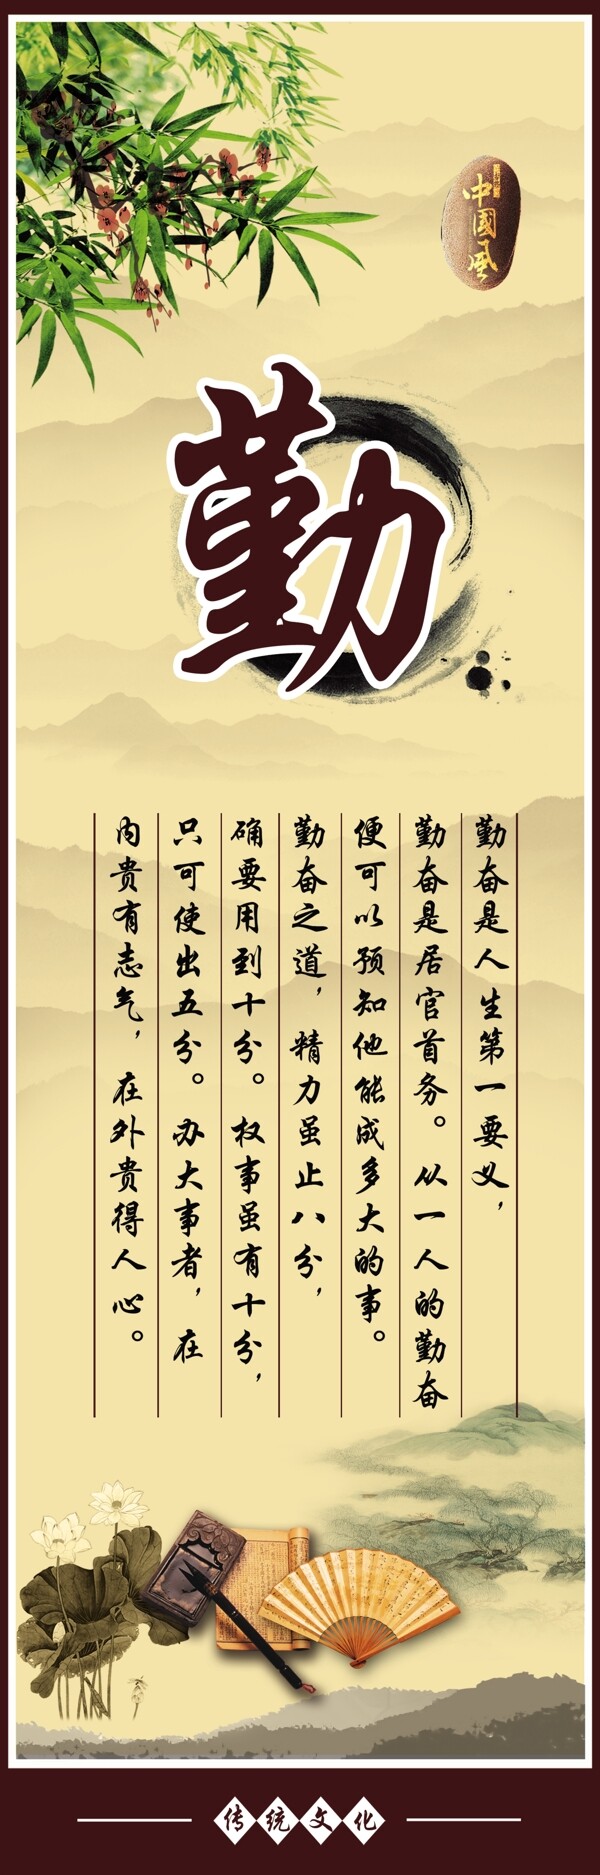 中國風
勤
勤奋是人生第一要义，
勤奋是居官首务。从一人的勤奋
便可以预知他能成多大的事。
勤奋之道，精力虽止八分，
确要用到十分。权事虽有十分，
只可使出五分。办大事者，在
内贵有志气，在外贵得人心。
传统文化